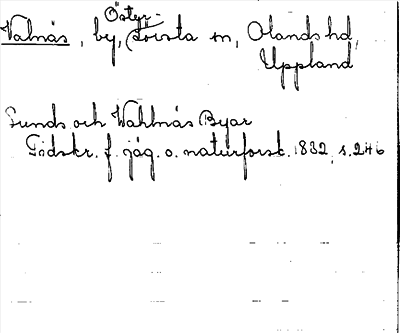 Valnäs, by, Österlövsta sn, Olands hd,
Uppland
Sunds och Wahlnäs Byar
Tidskr. f. jäg. o. naturforsk. 1832, s. 246